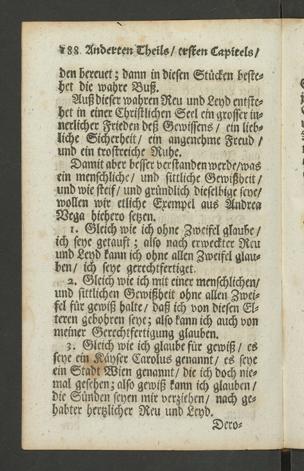 188 Anderten Theils / ersten Capitels /
den bereuet; dann in diesen Stücken beste-
het die wahre Buß.
Auß dieser wahren Reu und Leyd entste-
het in einer Christlichen Seel ein grosser in-
nerlicher Frieden deß Gewissens / ein lieb-
liche Sicherheit / ein angenehme Freud /
und ein trostreiche Ruhe.
Damit aber besser verstanden werde / was
ein menschliche / und sittliche Gewißheit /
und wie steif / und gründlich dieselbige seye /
wollen wir etliche Exempel aus Andrea
Vega hiehero setzen.
1. Gleich wie ich ohne Zweifel glaube /
ich seye getauft; also nach erweckter Reu
und Leyd kann ich ohne allen Zweifel glau-
ben / ich seye gerechtfertiget.
2. Gleich wie ich mit einer menschlichen /
und sittlichen Gewißheit ohne allen Zwei-
fel für gewiß halte / daß ich von diesen El-
teren gebohren seye; also kann ich auch von
meiner Gerechtfertigung glauben.
3. Gleich wie ich glaube für gewiß / es
seye ein Käyser Carolus genannt / es seye
ein Stadt Wien genannt / die ich doch nie-
mal gesehen; also gewiß kann ich glauben /
die Sünden seyen mir verziehen / nach ge-
habter hertzlicher Reu und Leyd.
Dero-